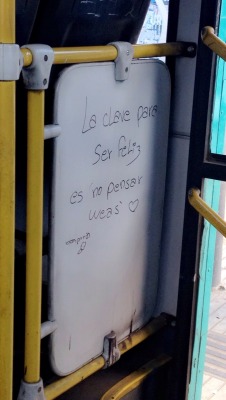 La clave para
Ser feliz
es no pensar
weas ♡